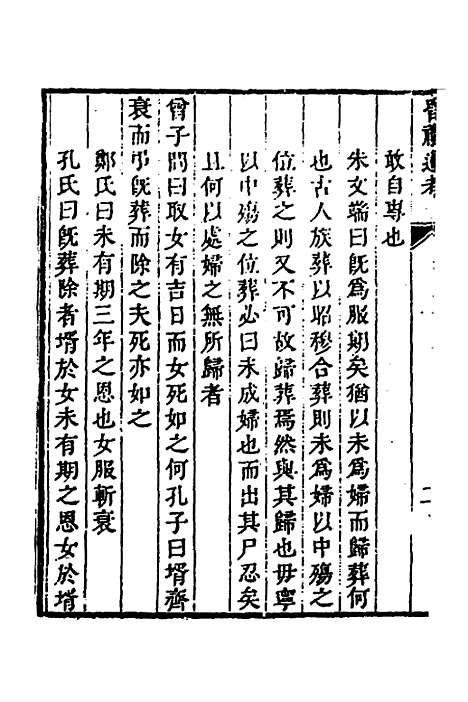 昏禮通考
二
敢自專也
朱文端曰旣爲服期矣猶以未爲婦而歸葬何
也古人族葬以昭穆合葬則未爲婦以中殤之
位葬之則又不可故歸葬焉然與其歸也毋寧
以中殤之位葬必曰未成婦也而出其尸忍矣
且何以處婦之無所歸者
曾子問曰取女有吉日而女死如之何孔子曰壻齊
衰而弔旣葬而除之夫死亦如之
鄭氏曰未有期三年之恩也女服斬衰
孔氏曰旣葬除者壻於女未有期之恩女於壻